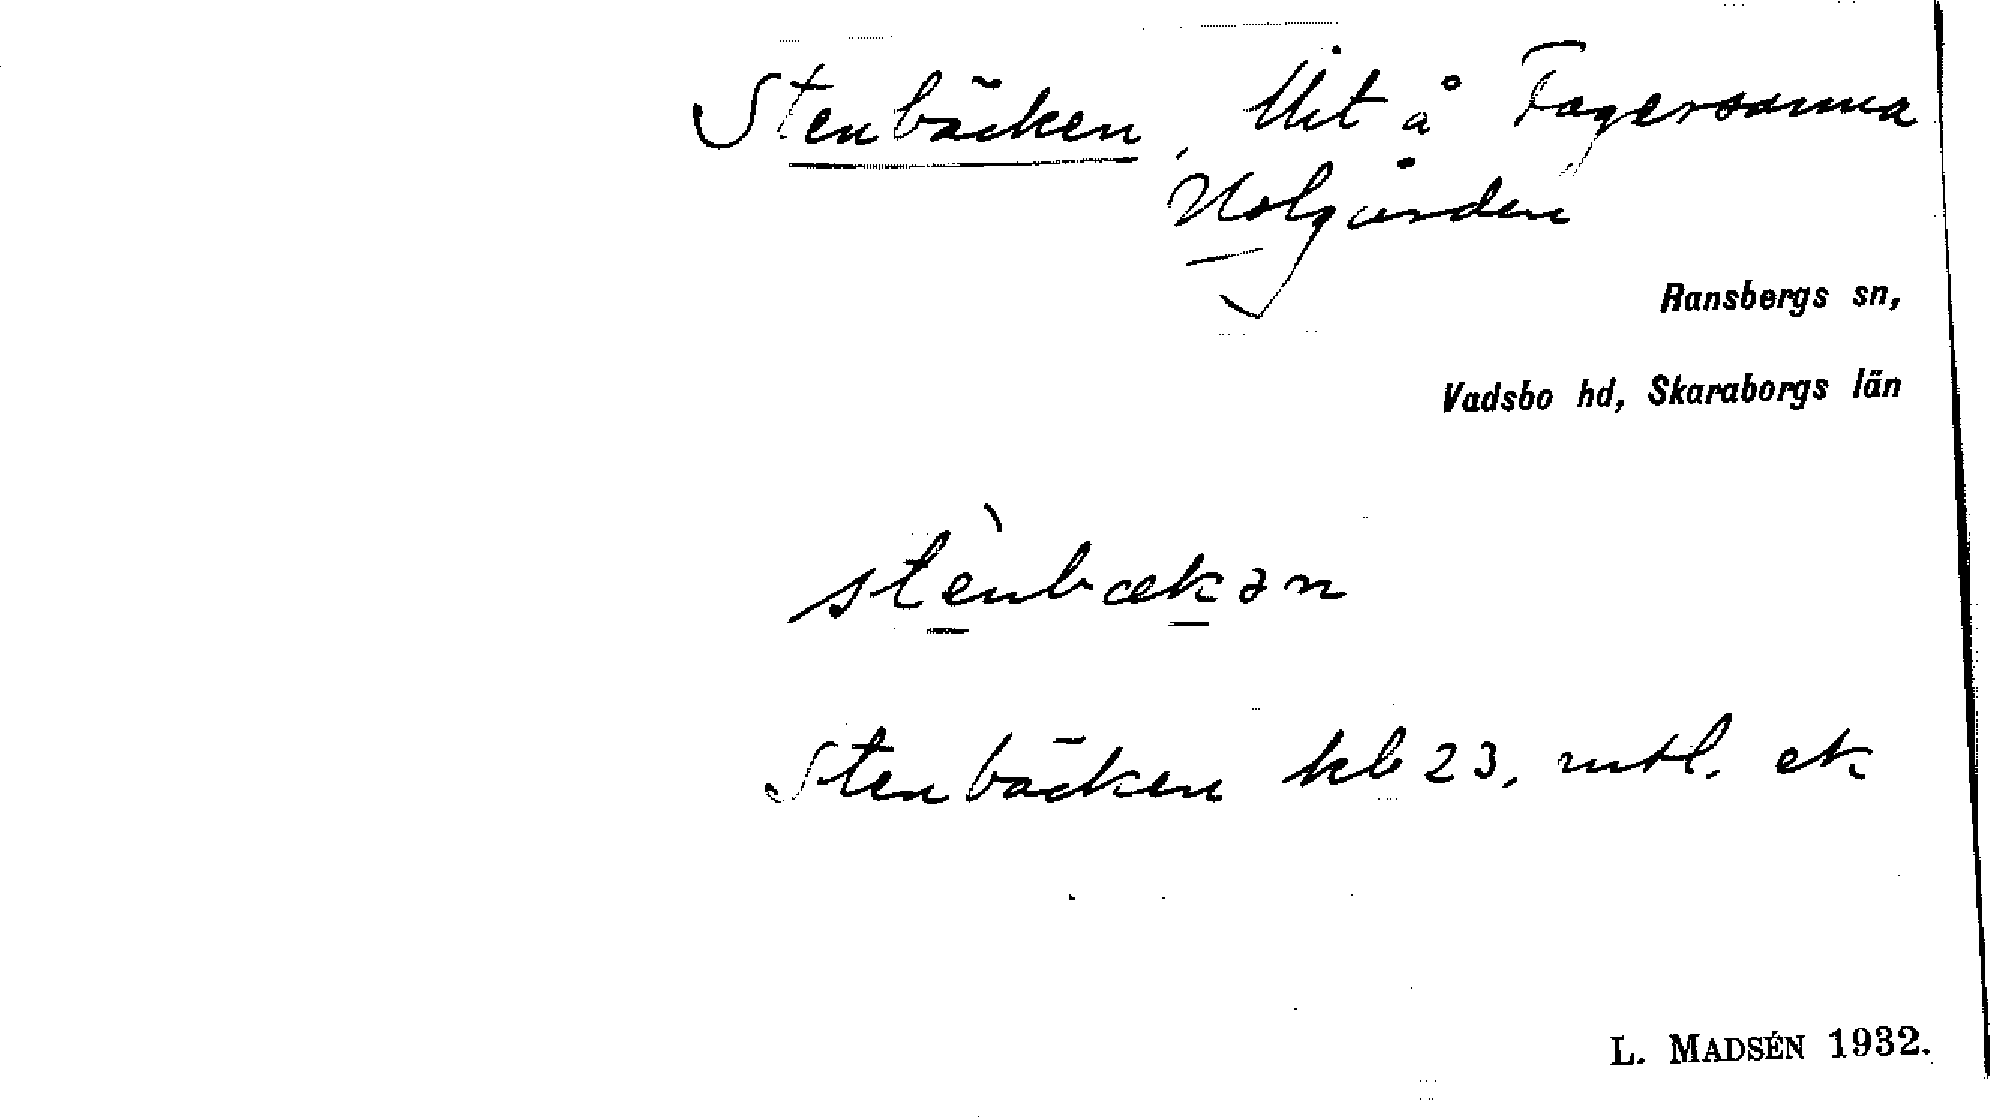 Stenbäcken, Ut å Fagersanna
Nolgården
Ransbergs sn,
Vadsbo hd, Skaraborgs län
stènbækən
Stenbäcken kb 23, mtl. ek
L. MADSÉN 1932.